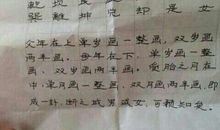 乾坎艮
巽離坤兑却是女
父年在上单岁画一整画,双岁画
两半画,母年在下,单岁画一整
画,双岁画两半画,受胎之月在
中,单月画一整画,双月画两半画,即
成一卦,断之或男或女,可预知矣。